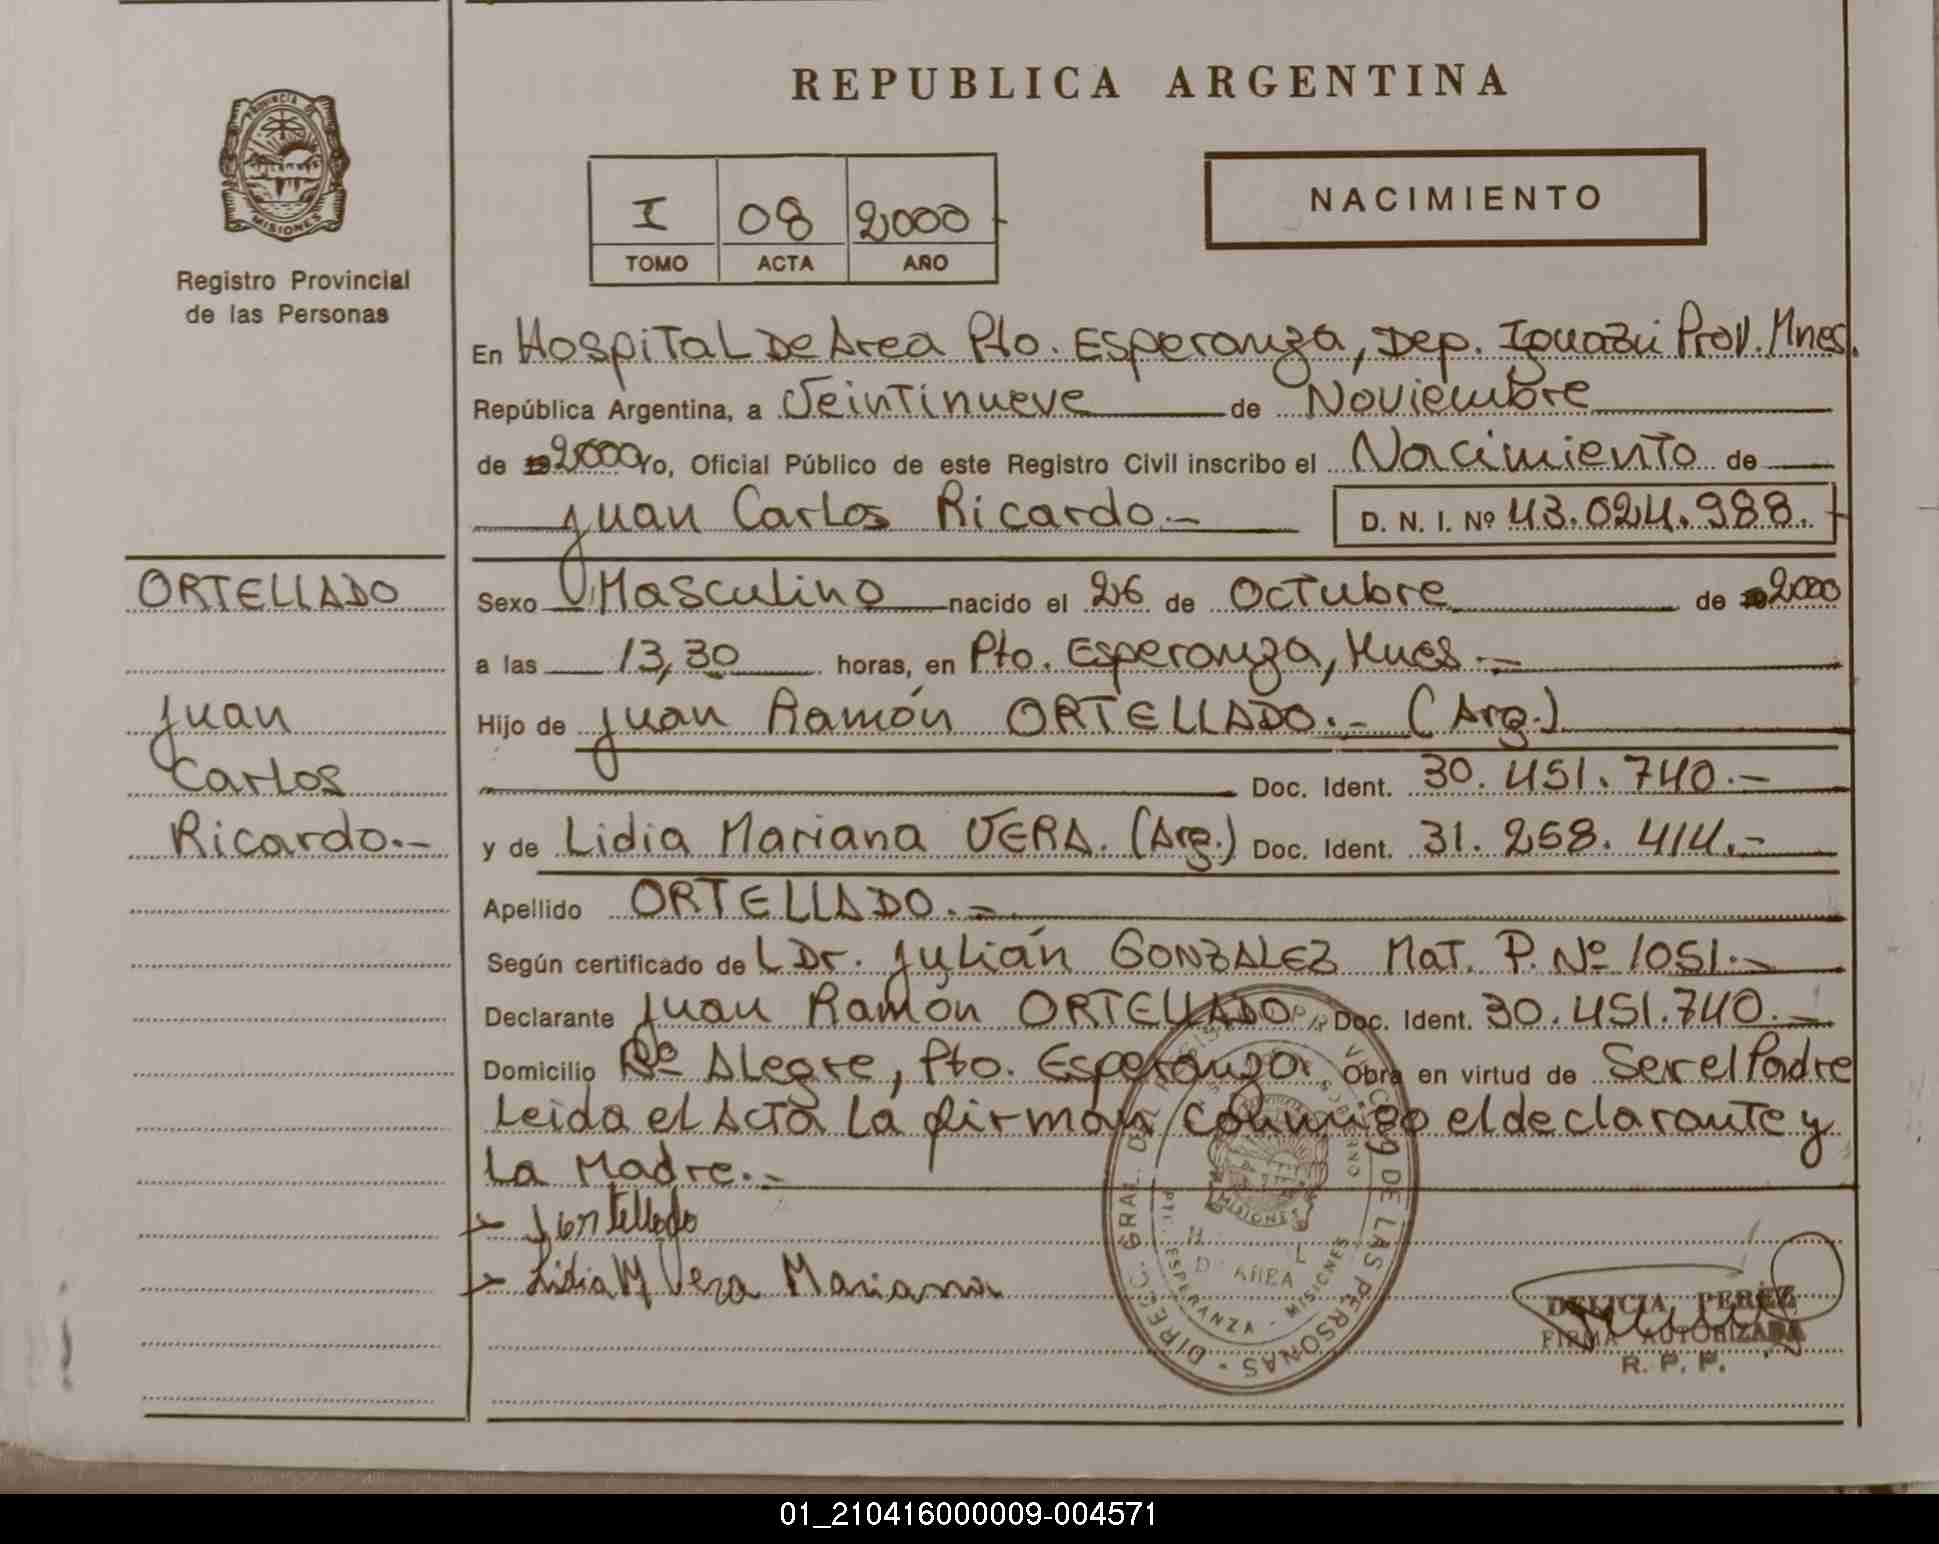 REPUBLICA ARGENTINA
PROVINCIA DE
MISIONES
Registro Provincial
de las Personas
I 08 2000
TOMO ACTA AÑO
NACIMIENTO
En Hospital De Area Pto. Esperanza, Dep. Iguazú Prov. Mnes.
República Argentina, a Veintinueve de Noviembre
de 19 2000 Yo, Oficial Público de este Registro Civil inscribo el Nacimiento de
Juan Carlos Ricardo.- D. N. I. Nº 43.024.988.
ORTELLADO
Juan
Carlos
Ricardo.-
Sexo Masculino nacido el 26 de Octubre de 2000
a las 13,30 horas, en Pto. Esperanza, Mnes.-
Hijo de Juan Ramón ORTELLADO.- (Arg.)
Doc. Ident. 30.451.740.-
y de Lidia Mariana VERA. (Arg.) Doc. Ident. 31.258.414.-
Apellido ORTELLADO.-
Según certificado de L Dr. Julián GONZALEZ Mat. P. Nº 1051.-
Declarante Juan Ramón ORTELLADO Doc. Ident. 30.451.740.-
Domicilio Bº Alegre, Pto. Esperanza. Obra en virtud de Ser el Padre
Leida el Acta La firman conmigo el declarante y
La Madre.-
J Ortellado
Lidia M Vera Mariana
DIREC. GRAL. DE DE LAS PERSONAS
PTO. ESPERANZA - MISIONES
MISIONES
D AREA
DELICIA PEREZ
FIRMA AUTORIZADA
R. P. P.
01_210416000009-004571